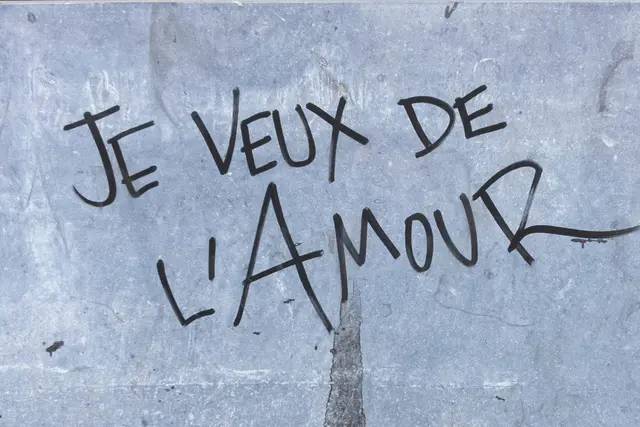 JE VEUX DE
L'AMOUR